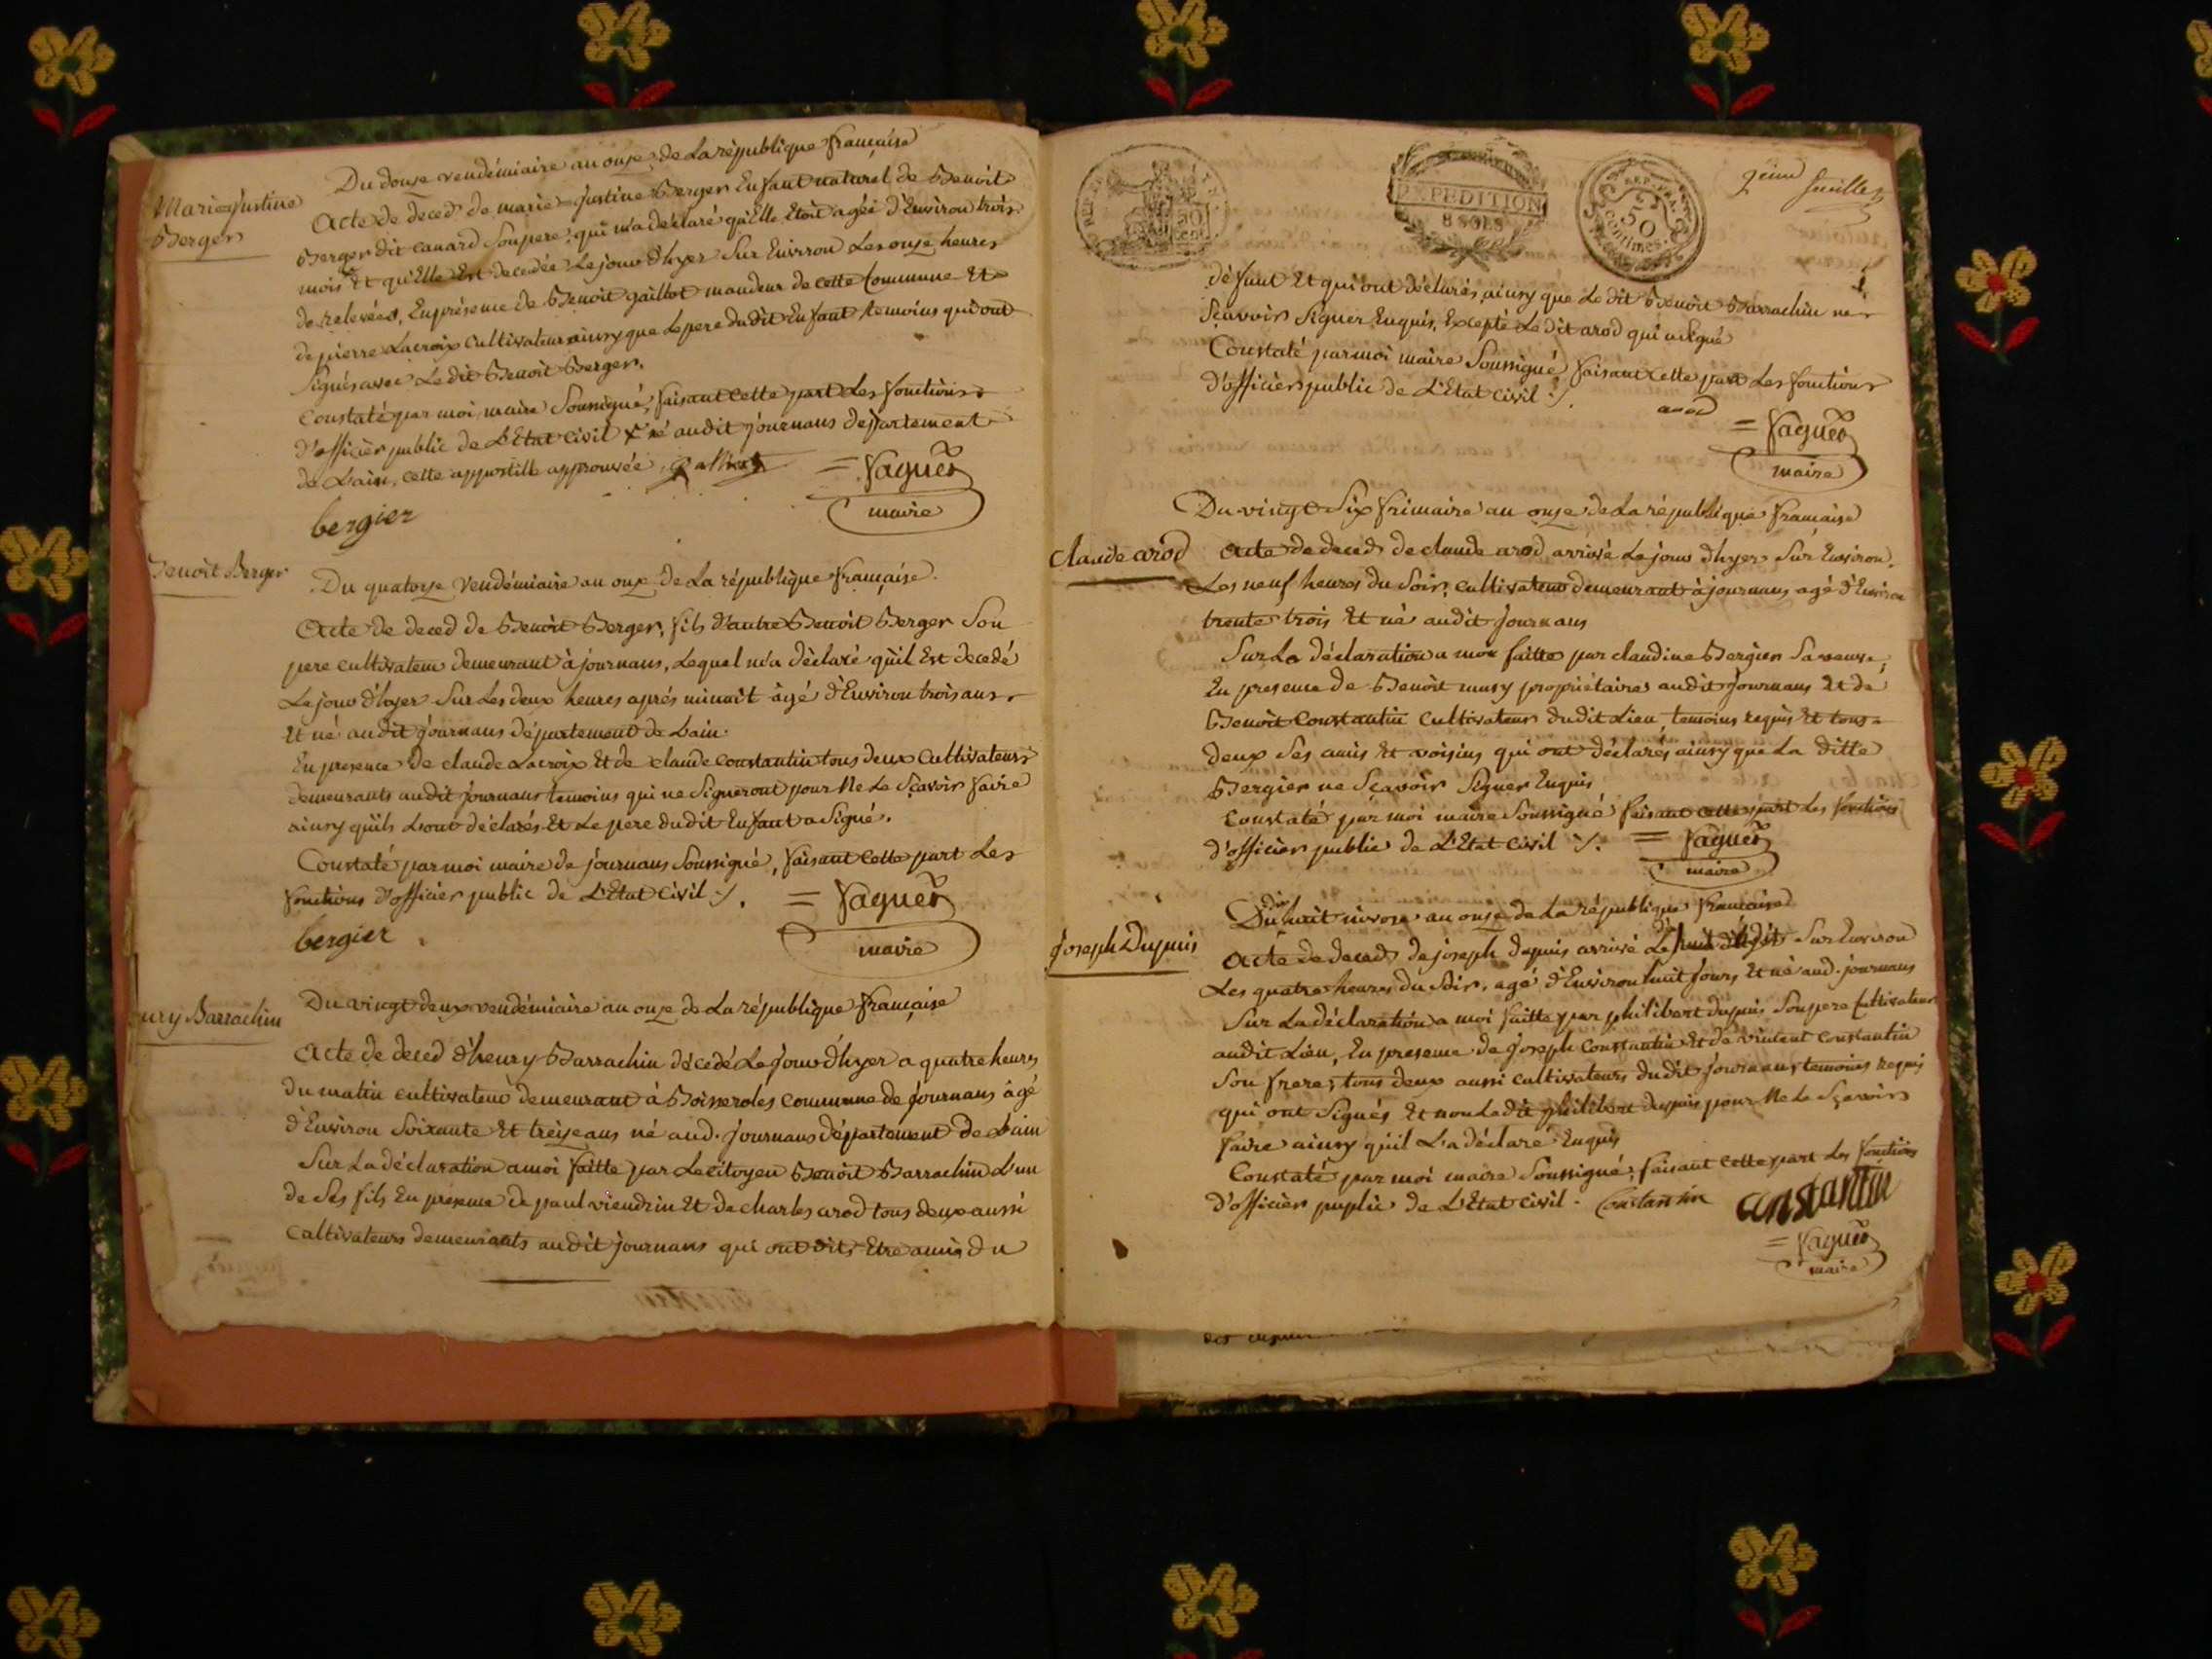 Du douze vendémiaire an onze de La république française
Marie justine
Berger
Acte de deced de marie justine Berger Enfant naturel de Benoit
Berger dit canard Son pere, qui m'a déclaré qu'Elle Etoit agée d'Environ trois
mois Et qu'Elle Est decedée Le jour d'hyer Sur Environ Les onze heures
de relevée, En présence de Benoit gaillot mandeur de cette Commune Et
de pierre Lacroix Cultivateur ainsy que Le pere du dit Enfant temoins qui ont
Signés avec Le dit Benoit Berger.
Constaté par moi maire Soussigné, faisant cette part Les fonctions
d'officier public de L'Etat civil né audit journans département
de L'ain, cette appostille approuvée
= faguet
maire
bergier
Benoit Berger
Du quatorze vendémiaire an onze de La république française.
Acte de deced de Benoit Berger, fils d'autre Benoit Berger Son
pere cultivateur demeurant à journans, Lequel m'a déclaré qu'il Est decedé
Le jour d'hyer Sur Les deux heures aprés minuit âgé d'Environ trois ans
Et né audit journans département de Lain.
En presence de claude Lacroix Et de claude constantin tous deux Cultivateurs
demeurants audit journans temoins qui ne Signeront pour Ne Le Sçavoir faire
ainsy qu'ils L'ont déclarés Et Le pere du dit Enfant a Signé.
Constaté par moi maire de journans Soussigné, faisant cette part Les
fonctions d'officier public de L'Etat civil ./.
= faguet
maire
bergier
Du vingt deux vendémiaire an onze de La république française
nry Barrachin
Acte de deced d'henry Barrachin décédé Le jour d'hyer a quatre heures
du matin cultivateur demeurant à Boisseroles commune de journans âgé
d'Environ Soixante Et treize ans né aud. journans département de Lain
Sur La déclaration a moi faitte par Le citoyen Benoit Barrachin L'un
de Ses fils En presence de paul viendrin Et de charles arod tous deux aussi
Cultivateurs demeurants audit journans qui ont dits Etre amis du
EXPEDITION
8 SOLS
50
Centimes
2eime feuillet
défunt Et qui ont déclarés ainsy que Le dit Benoit Barrachin ne
Sçavoir Signer Enquis, Excepté Le dit arod qui a Signé
Constaté par moi maire Soussigné faisant cette part Les fonctions
d'officier public de L'Etat civil ./.
arod
= faguet
maire
Du vingt Six frimaire an onze de La république française
claude arod
Acte de deced de claude arod arrivé Le jour d'hyer Sur Environ
Les neuf heures du Soir, cultivateur demeurant à journans agé d'Environ
trente trois Et né audit journans
Sur La déclaration a moi faitte par claudine Bergier Sa veuve,
En presence de Benoit musy propriétaire audit journans Et de
Benoit Constantin Cultivateur dudit Lieu temoins requis Et tous
deux Ses amis Et voisins qui ont déclarés ainsy que La ditte
Bergier ne Sçavoir Signer Enquis
Constaté par moi maire Soussigné faisant cette part Les fonctions
d'officier public de L'Etat civil ./.
= faguet
maire
Du dix huit nivose an onze de La république française
Joseph Dupuis
Acte de deced de joseph dupuis arrivé Le Sur Environ
Les quatre heures du Soir, agé d'Environ huit jours Et né aud. journans
Sur La déclaration a moi faitte par philibert dupuis Son pere Cultivateur
audit Lieu, En presence de joseph Constantin Et de vincent constantin
Son frere, tous deux aussi cultivateurs dudit journans temoins requis
qui ont Signés Et non Le dit philibert dupuis pour Ne Le Sçavoir
faire ainsy qu'il L'a déclaré Enquis
Constaté par moi maire Soussigné, faisant cette part Les fonctions
d'officier puplic de L'Etat civil. Constantin constantin
= faguet
maire